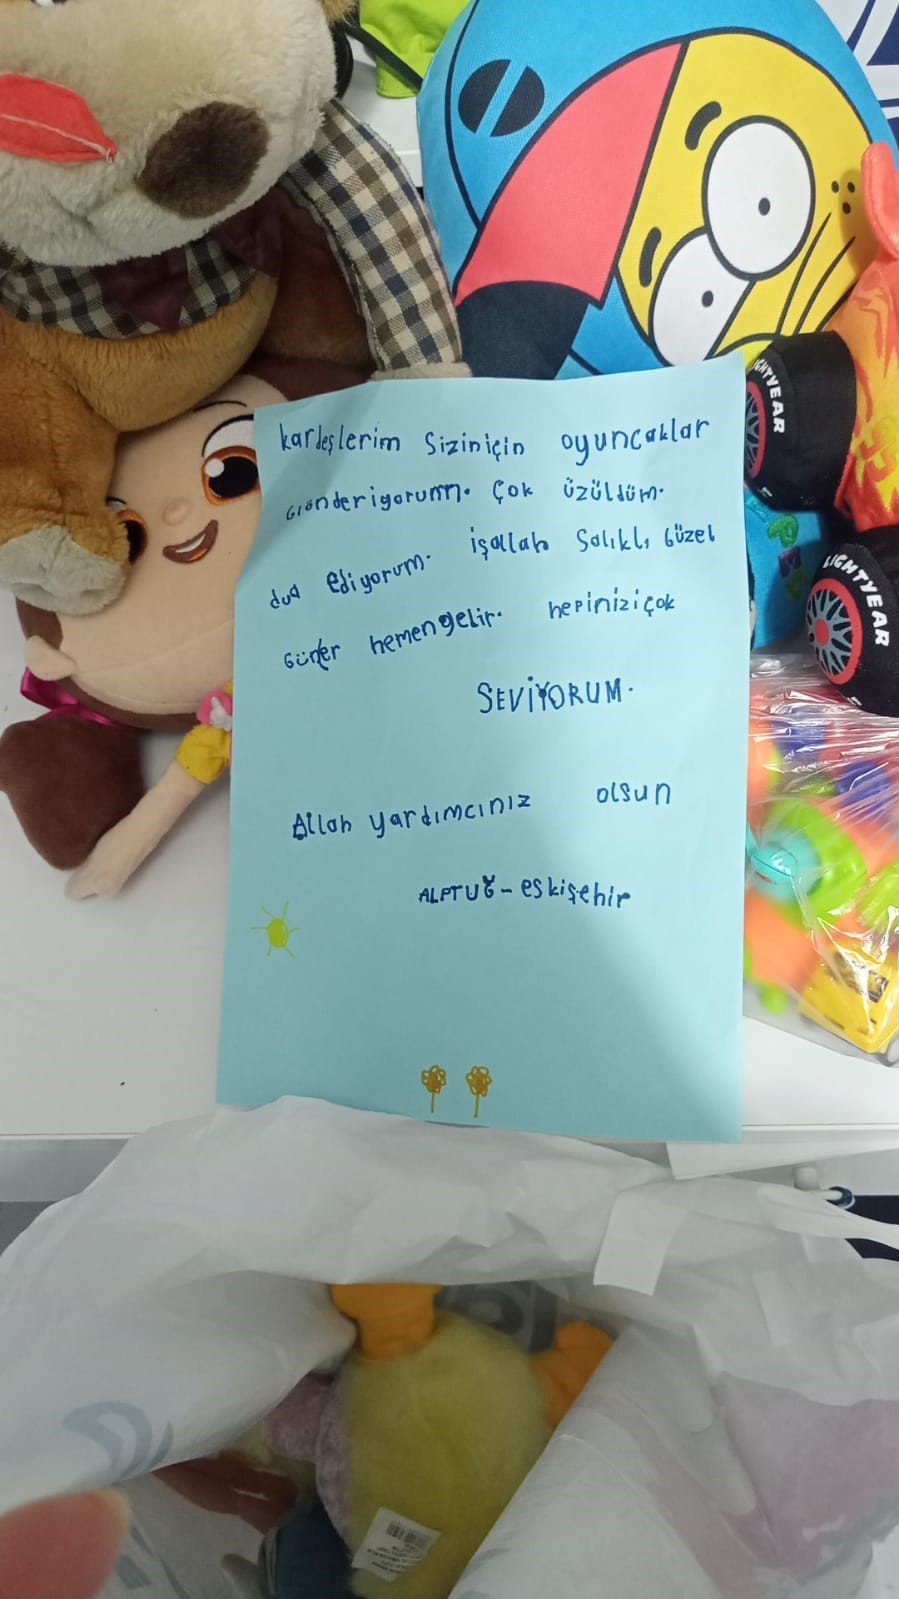 kardeşlerim Siziniçin oyuncaklar
Gönderiyorum. Çok üzüldüm.
dua ediyorum. işallah Salıklı Güzel
Günler hemengelir. hepiniziçok
SEVİYORUM.
Allah yardımcınız olsun
ALPTUĞ-eskişehir
LIGHTYEAR
LIGHTYEAR